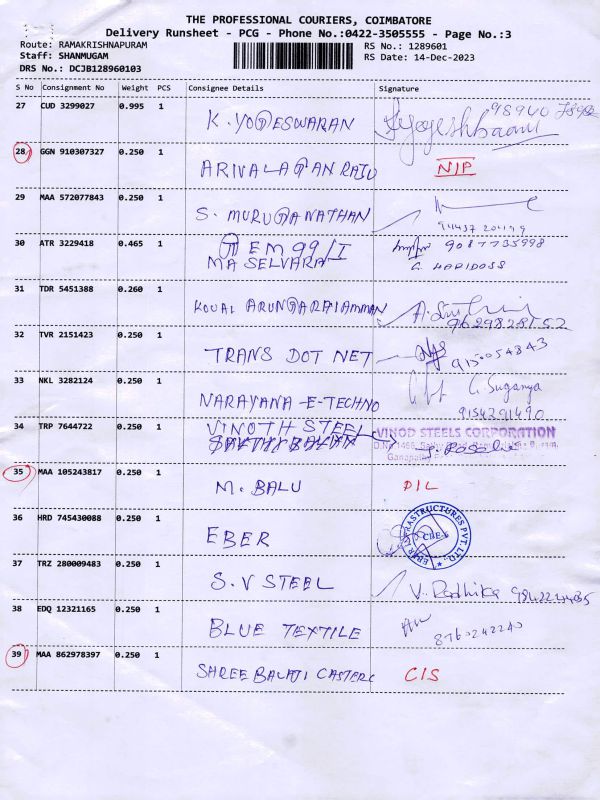 THE PROFESSIONAL COURIERS, COIMBATORE
Delivery Runsheet - PCG - Phone No.:0422-3505555 - Page No.:3
Route: RAMAKRISHNAPURAM RS No.: 1289601
Staff: SHANMUGAM RS Date: 14-Dec-2023
DRS No.: DCJB128960103
S No Consignment No Weight PCS Consignee Details Signature
27 CUD 3299027 0.995 1 K. YOGESWARAN 98940
28 GGN 910307327 0.250 1 ARIVALAGAN RAJU NIP
29 MAA 572077843 0.250 1 S. MURUGANATHAN
30 ATR 3229418 0.465 1 EM 99/I 9087735998
MA SELVARA G. HARIDOSS
31 TDR 5451388 0.260 1
32 TVR 2151423 0.250 1 TRANS DOT NET
33 NKL 3282124 0.250 1 NARAYANA E-TECHNO G. Suganya
9154291490
34 TRP 7644722 0.250 1 VINOTH STEEL VINOD STEELS CORPORATION
35 MAA 105243817 0.250 1 M. BALU DIL
36 HRD 745430088 0.250 1 EBER EBER INFRASTRUCTURES PVT. LTD.
37 TRZ 280009483 0.250 1 S.V STEEL V. Radhika
38 EDQ 12321165 0.250 1 BLUE TEXTILE 8760242240
39 MAA 862978397 0.250 1 SHREE BALAJI CASTERC CIS